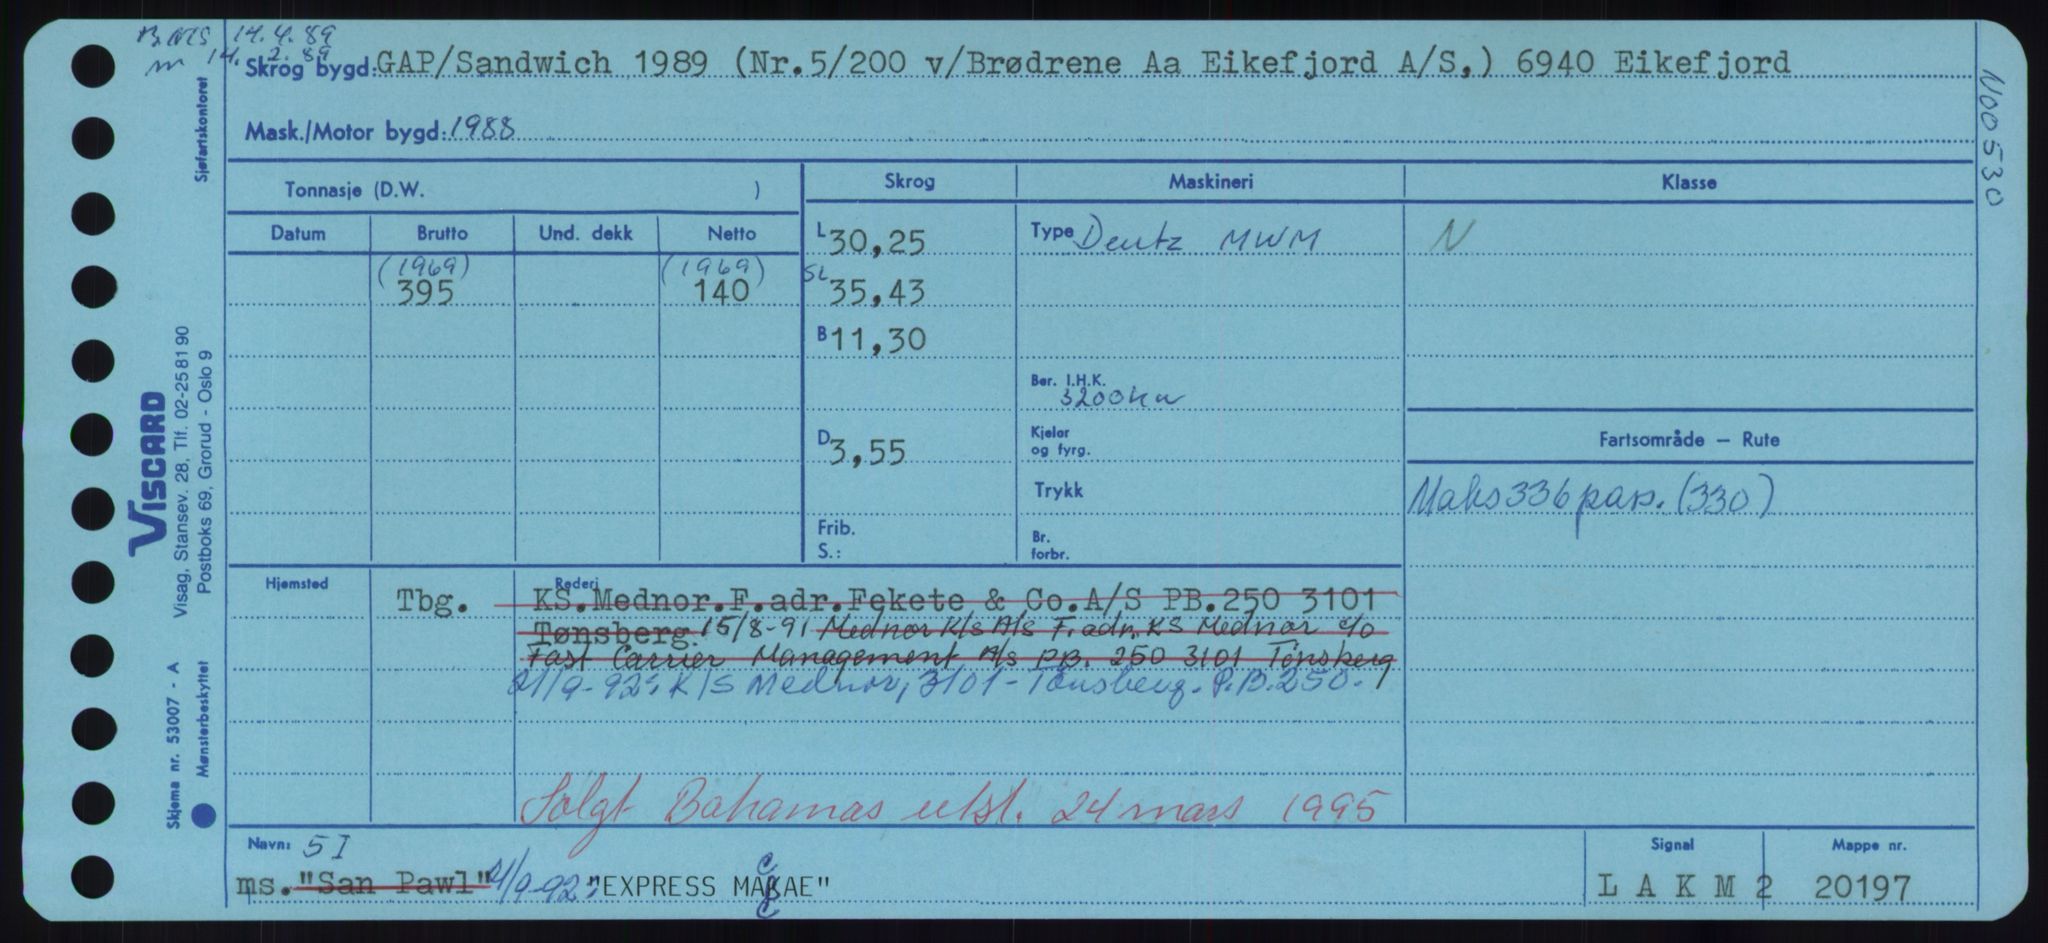 B.NIS 14.4.89
m 14.2.89
Skrog bygd: GAP/Sandwich 1989 (Nr.5/200 v/Brødrene Aa Eikefjord A/S,) 6940 Eikefjord
Mask./Motor bygd: 1988
N00530
Sjøfartskontoret
Tonnasje (D.W. )
Skrog
Maskineri
Klasse
Datum Brutto Und. dekk Netto
L 30,25
Type Deutz MWM
N
(1969) (1969)
395 140
SL 35,43
B 11,30
Ber. I.H.K.
3200 kw
D 3,55
Kjeler
og fyrg.
Fartsområde – Rute
Trykk
Maks 336 pas. (330)
Frib.
S.:
Br.
forbr.
VISCARD
Visag, Stansev. 28, Tlf. 02-25 81 90
Postboks 69, Grorud - Oslo 9
Skjema nr. 53007 - A
Mønsterbeskyttet
Hjemsted
Rederi
Tbg. KS.Mednor.F.adr.Fekete & Co.A/S PB.250 3101
Tønsberg. 15/8-91 Mednor K/S A/S F.adr. KS Mednor c/o
Fast Carrier Management A/s PB. 250 3101 Tønsberg
21/9-92: K/S Mednor, 3101-Tønsberg. P.B.250.
Solgt Bahamas utst. 24 mars 1995
Navn: 5 I
ms. "San Pawl" 21/9-92: "EXPRESS MACAE"
Signal
L A K M 2
Mappe nr.
20197